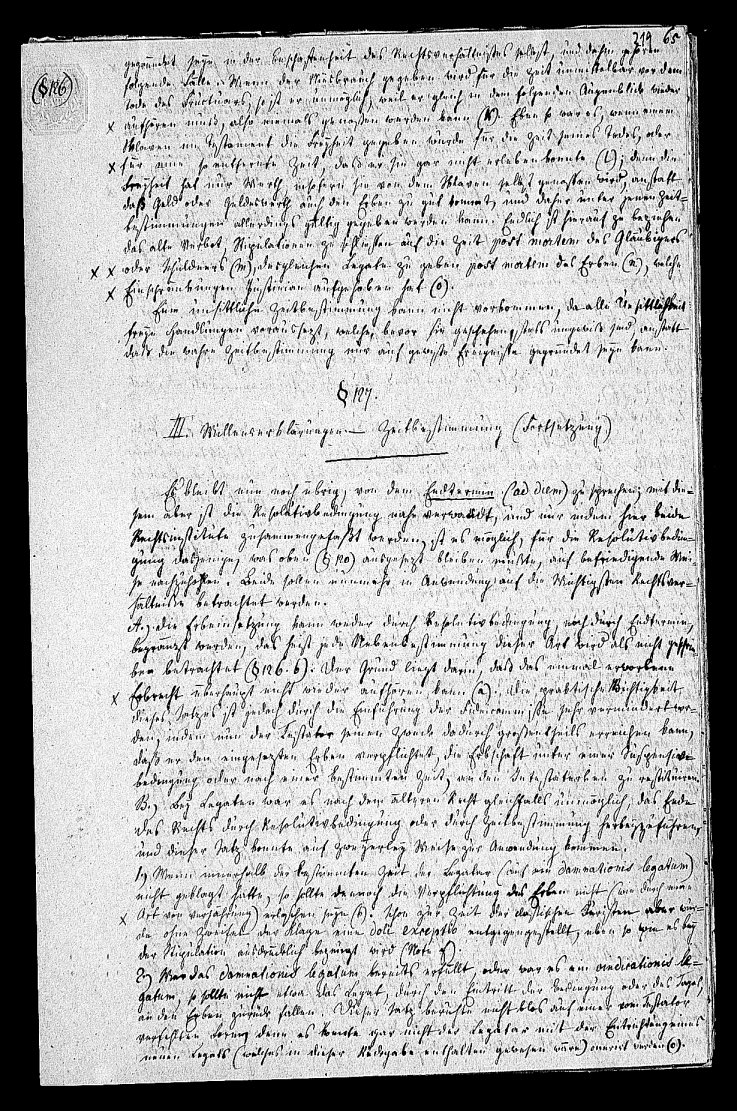 219 65
(§126)
gegründet seyn in der Beschaffenheit des Rechtsverhältnisses selbst, und dahin gehören
folgende Fälle. Wenn der Niesbrauch gegeben wird für die Zeit unmittelbar vor dem
Tode des Fructuars, so ist er unmöglich, weil er gleich in dem folgenden Augenblick wieder
x aufhören muß, also niemals genossen werden kann (k). Eben so war es, wenn einem
Sklaven im Testament die Freyheit gegeben wurde für die Zeit seines Todes, oder
x für eine so entfernte Zeit, daß er sie gar nicht erleben konnte (l); denn die
Freyheit hat nur Werth, insofern sie von dem Sklaven selbst genossen wird, anstatt
daß Geld oder Geldeswerth auch den Erben zu gut kommt, und daher unter jenen Zeit-
bestimmungen allerdings gültig gegeben werden kann. Endlich ist hierauf zu beziehen
das alte Verbot, Stipulationen zu schließen auf die Zeit post mortem des Gläubigers
x x oder Schuldners (m), desgleichen Legate zu geben post mortem des Erben (n), welche
x Einschränkungen Justinian aufgehoben hat (o).
Eine unsittliche Zeitbestimmung kann nicht vorkommen, da alle Unsittlichkeit
freye Handlungen voraussetzt, welche, bevor sie geschehen, stets ungewiß sind, anstatt
daß die wahre Zeitbestimmung nur auf gewisse Ereignisse gegründet seyn kann.
§ 127.
III. Willenserklärungen. — Zeitbestimmung (Fortsetzung)
Es bleibt nun noch übrig, von dem Endtermin (ad diem) zu sprechen; mit die-
sem aber ist die Resolutivbedingung nahe verwandt, und nur indem hier beide
Rechtsinstitute zusammengefaßt werden, ist es möglich, für die Resolutivbedin-
gung dasjenige, was oben (§ 120) ausgesetzt bleiben mußte, auf befriedigende Wei-
se nachzuholen. Beide sollen nunmehr in Anwendung auf die wichtigsten Rechtsver-
hältnisse betrachtet werden.
A.) Die Erbeinsetzung kann weder durch Resolutivbedingung, noch durch Endtermin,
begränzt werden, das heißt jede Nebenbestimmung dieser Art wird als nicht geschrie-
ben betrachtet (§ 126. b). Der Grund liegt darin, daß das einmal erworbene
x Erbrecht überhaupt nicht wieder aufhören kann (a). Die praktische Wichtigkeit
dieses Satzes ist jedoch durch die Einführung der Fideicommisse sehr vermindert wor-
den, indem nun der Testator seinen Zweck dadurch großentheils erreichen kann,
daß er den eingesetzten Erben verpflichtet, die Erbschaft unter einer Suspensiv-
bedingung, oder nach einer bestimmten Zeit, an den Intestaterben zu restituiren.
B.) Bey Legaten war es nach dem älteren Recht gleichfalls unmöglich, das Ende
des Rechts durch Resolutivbedingung oder durch Zeitbestimmung herbeyzuführen,
und dieser Satz konnte auf zweyerley Weise zur Anwendung kommen.
1) Wenn innerhalb der bestimmten Zeit der Legatar (aus ein damnationis legatum)
nicht geklagt hatte, so sollte dennoch die Verpflichtung des Erben nicht (wie durch eine
x Art von Verjährung) erloschen seyn (b). Schon zur Zeit der classischen Juristen aber wur-
de ohne Zweifel der Klage eine doli exceptio entgegengestellt, eben so wie es bey
der Stipulation ausdrücklich bezeugt wird (Note f)
2) War das damnationis legatum bereits erfüllt, oder war es ein vindicationis le-
gatum, so sollte nicht etwa das Legat, durch den Eintritt der Bedingung oder des Tages,
an den Erben zurück fallen. Dieser Satz beruhte nicht blos auf einer vom Testator
verfehlten Form, denn es konnte gar nicht der Legatar mit der Entrichtung eines
neuen Legats (welches in dieser Rückgabe enthalten gewesen wäre) onerirt werden (c).